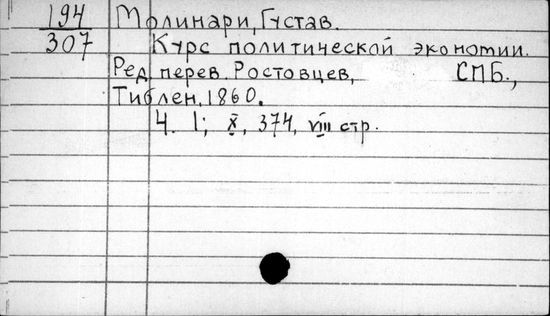 194
307
Молинари, Густав.
Курс политической экономии.
Ред. перев. Ростовцев, СПБ.,
Тиблен, 1860.
Ч. I; X, 374, VIII стр.